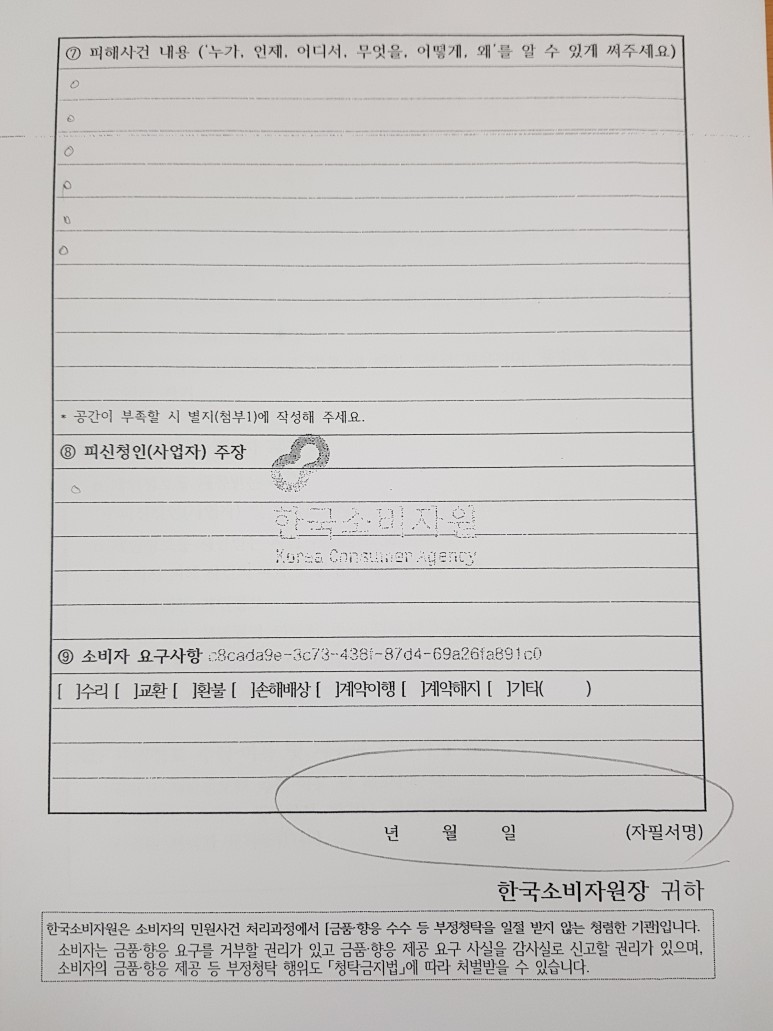 ⑦ 피해사건 내용 ('누가, 인제, 어디서, 무엇을, 어떻게, 왜'를 알 수 있게 써주세요)
* 공간이 부족할 시 별지(첨부1)에 작성해 주세요.
⑧ 피신청인(사업자) 주장
한국소비자원
Korea Consumer Agency
⑨ 소비자 요구사항 c8cada9e-3c73-438f-87d4-69a26fa891c0
[ ]수리 [ ]교환 [ ]환불 [ ]손해배상 [ ]계약이행 [ ]계약해지 [ ]기타( )
년 월 일 (자필서명)
한국소비자원장 귀하
한국소비자원은 소비자의 민원사건 처리과정에서 [금품·향응 수수 등 부정청탁을 일절 받지 않는 청렴한 기관]입니다.
소비자는 금품·향응 요구를 거부할 권리가 있고 금품·향응 제공 요구 사실을 감사실로 신고할 권리가 있으며,
소비자의 금품·향응 제공 등 부정청탁 행위도 「청탁금지법」에 따라 처벌받을 수 있습니다.